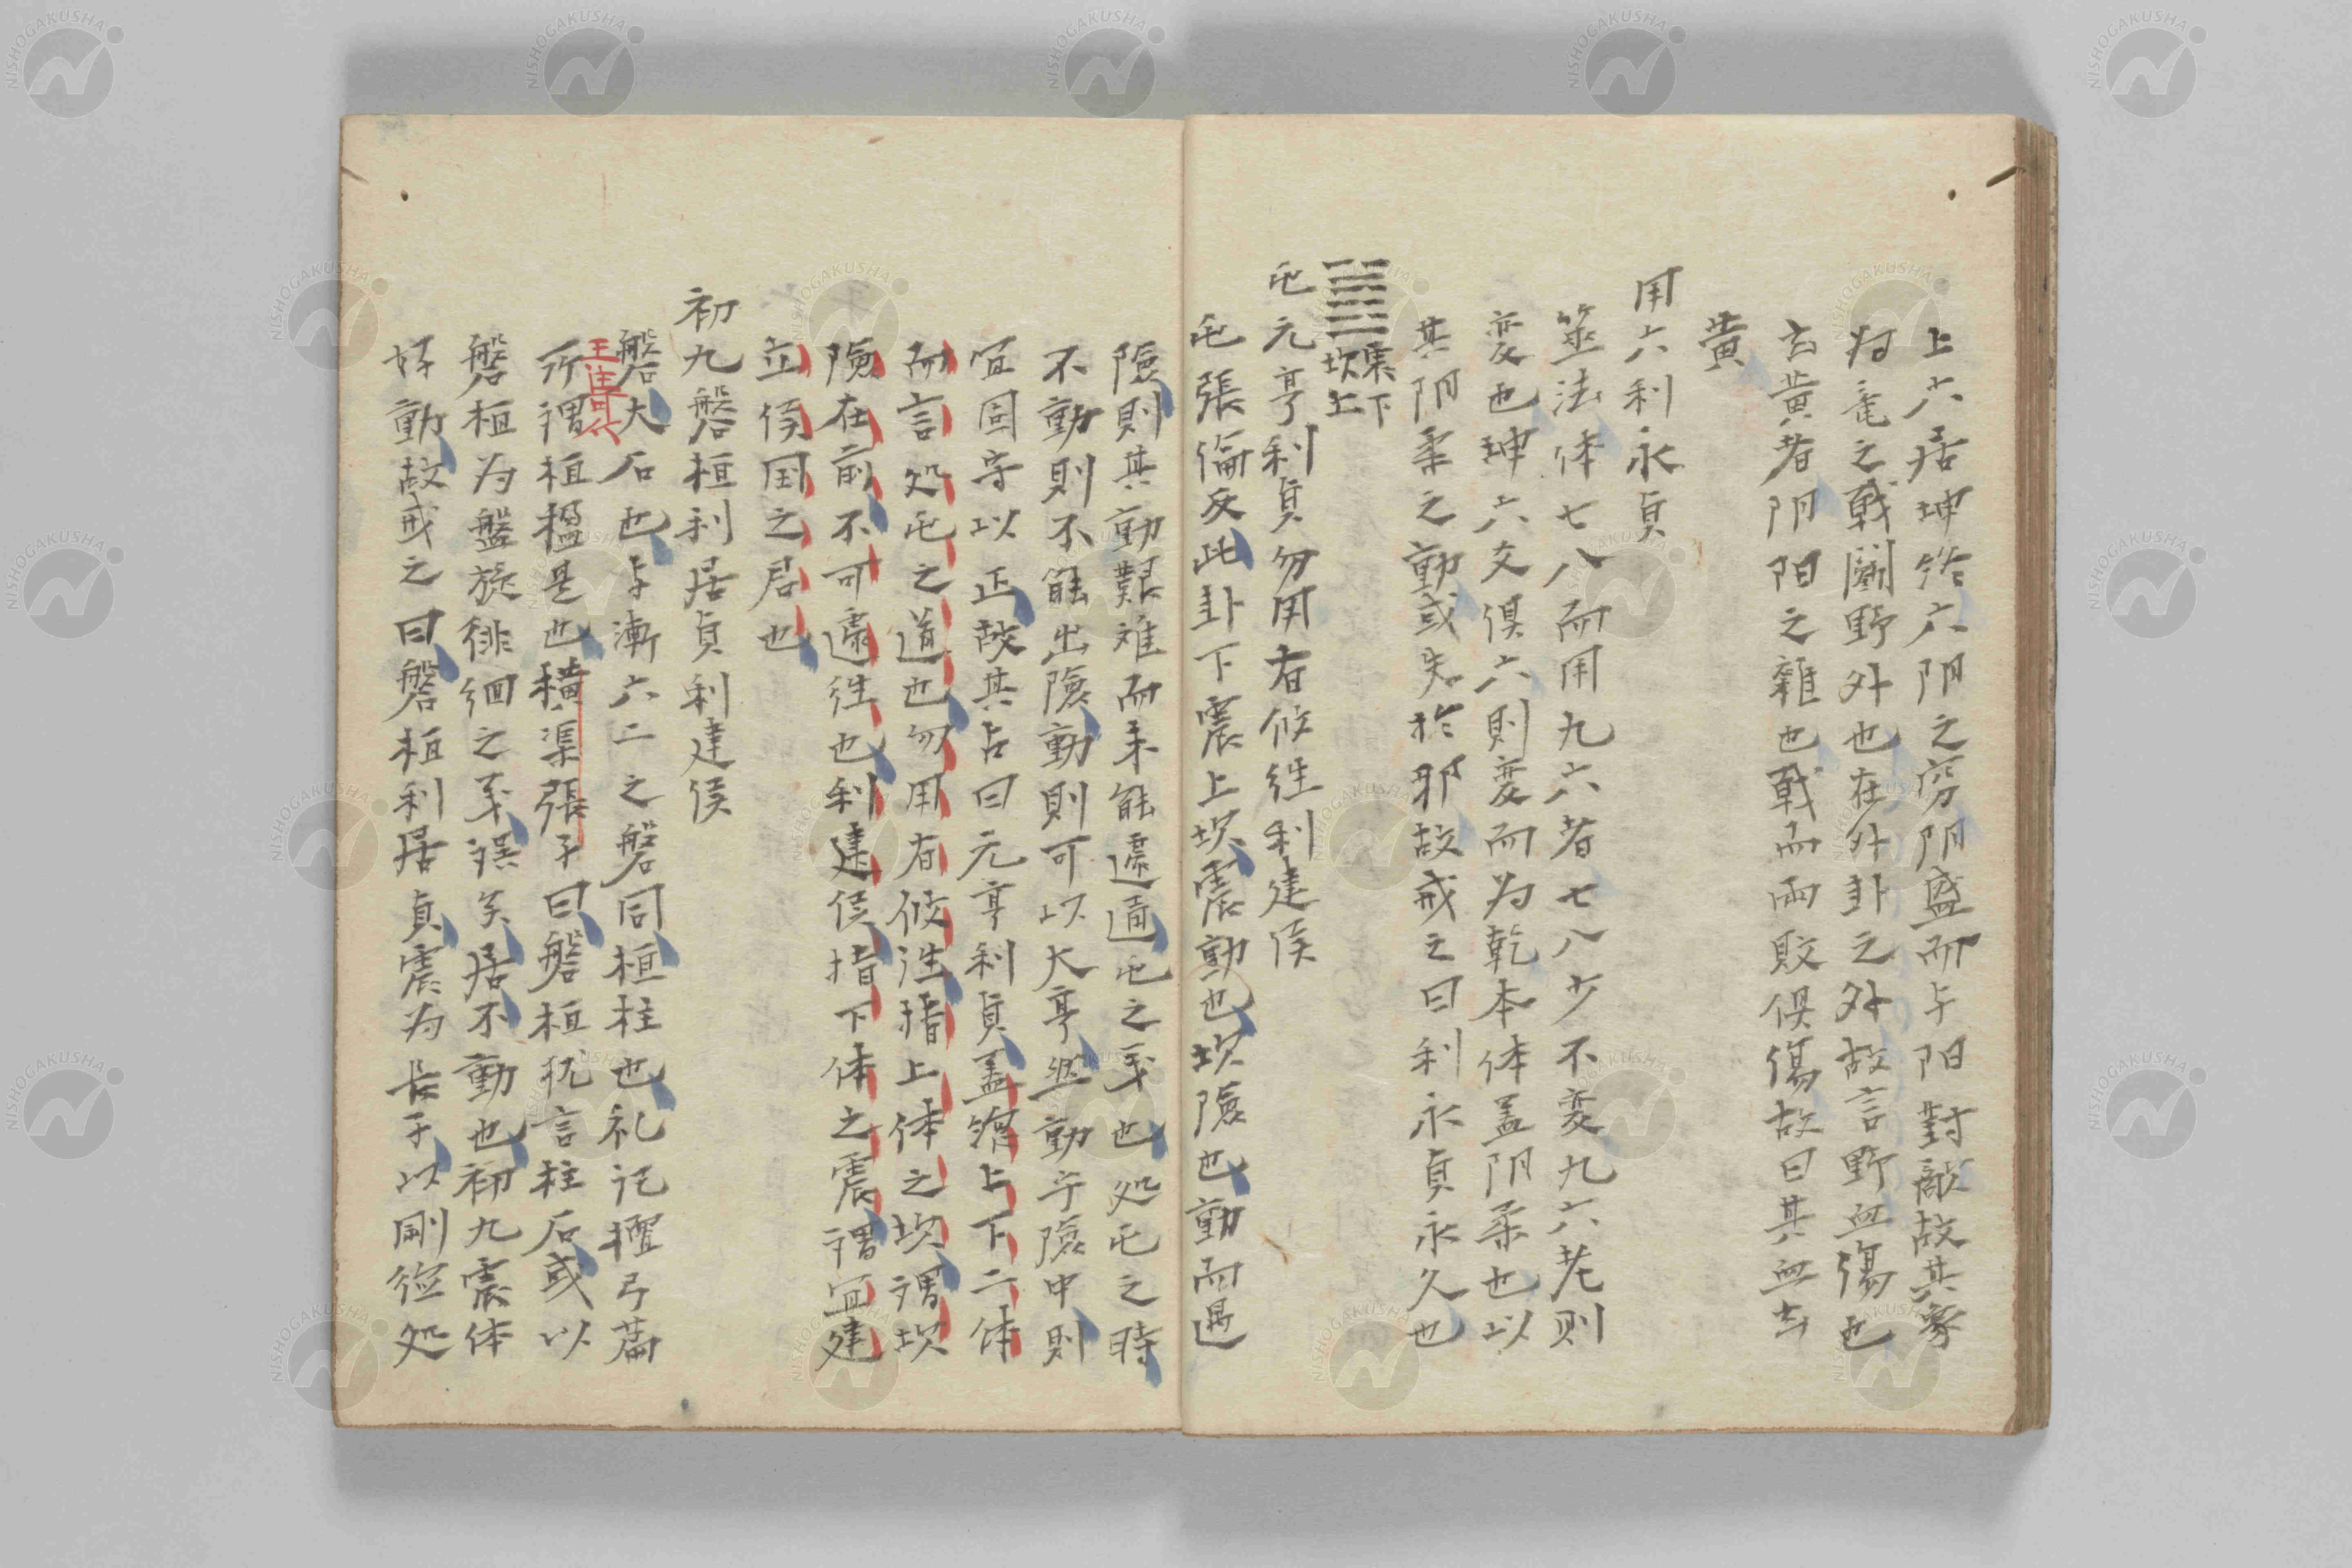 上六居坤終六阴之窮阴盛而与阳對敵故其象
为竜之戰闘野外也在外卦之外故言野血傷也
玄黄者阴阳之雜也戰而両敗倶傷故曰其血玄
黄
用六利永貞
筮法体七八而用九六者七八少不変九六老则
変也坤六爻倶六則変而为乾本体盖阴柔也以
其阴柔之動或失於邪故戒之曰利永貞永久也
震下
坎上
屯元亨利貞勿用有攸徃利建侯
屯張倫反此卦下震上坎震動也坎険也動而遇
険則其動艱难而未能遽通屯之義也処屯之時
不動則不能出険動則可以大亨然動乎険中則
宜固守以正故其占曰元亨利貞盖總上下二体
而言処屯之道也勿用有攸徃指上体之坎謂坎
険在前不可遽徃也利建侯指下体之震謂宜建
立侯国之君也
初九磐桓利居貞利建侯
磐大石也与漸六二之磐同桓柱也礼記檀弓篇
王注具
所謂桓楹是也横渠張子曰磐桓犹言柱石或以
磐桓为盤旋徘徊之義誤矣居不動也初九震体
好動故戒之曰磐桓利居貞震为長子以剛徳処
NISHOGAKUSHA